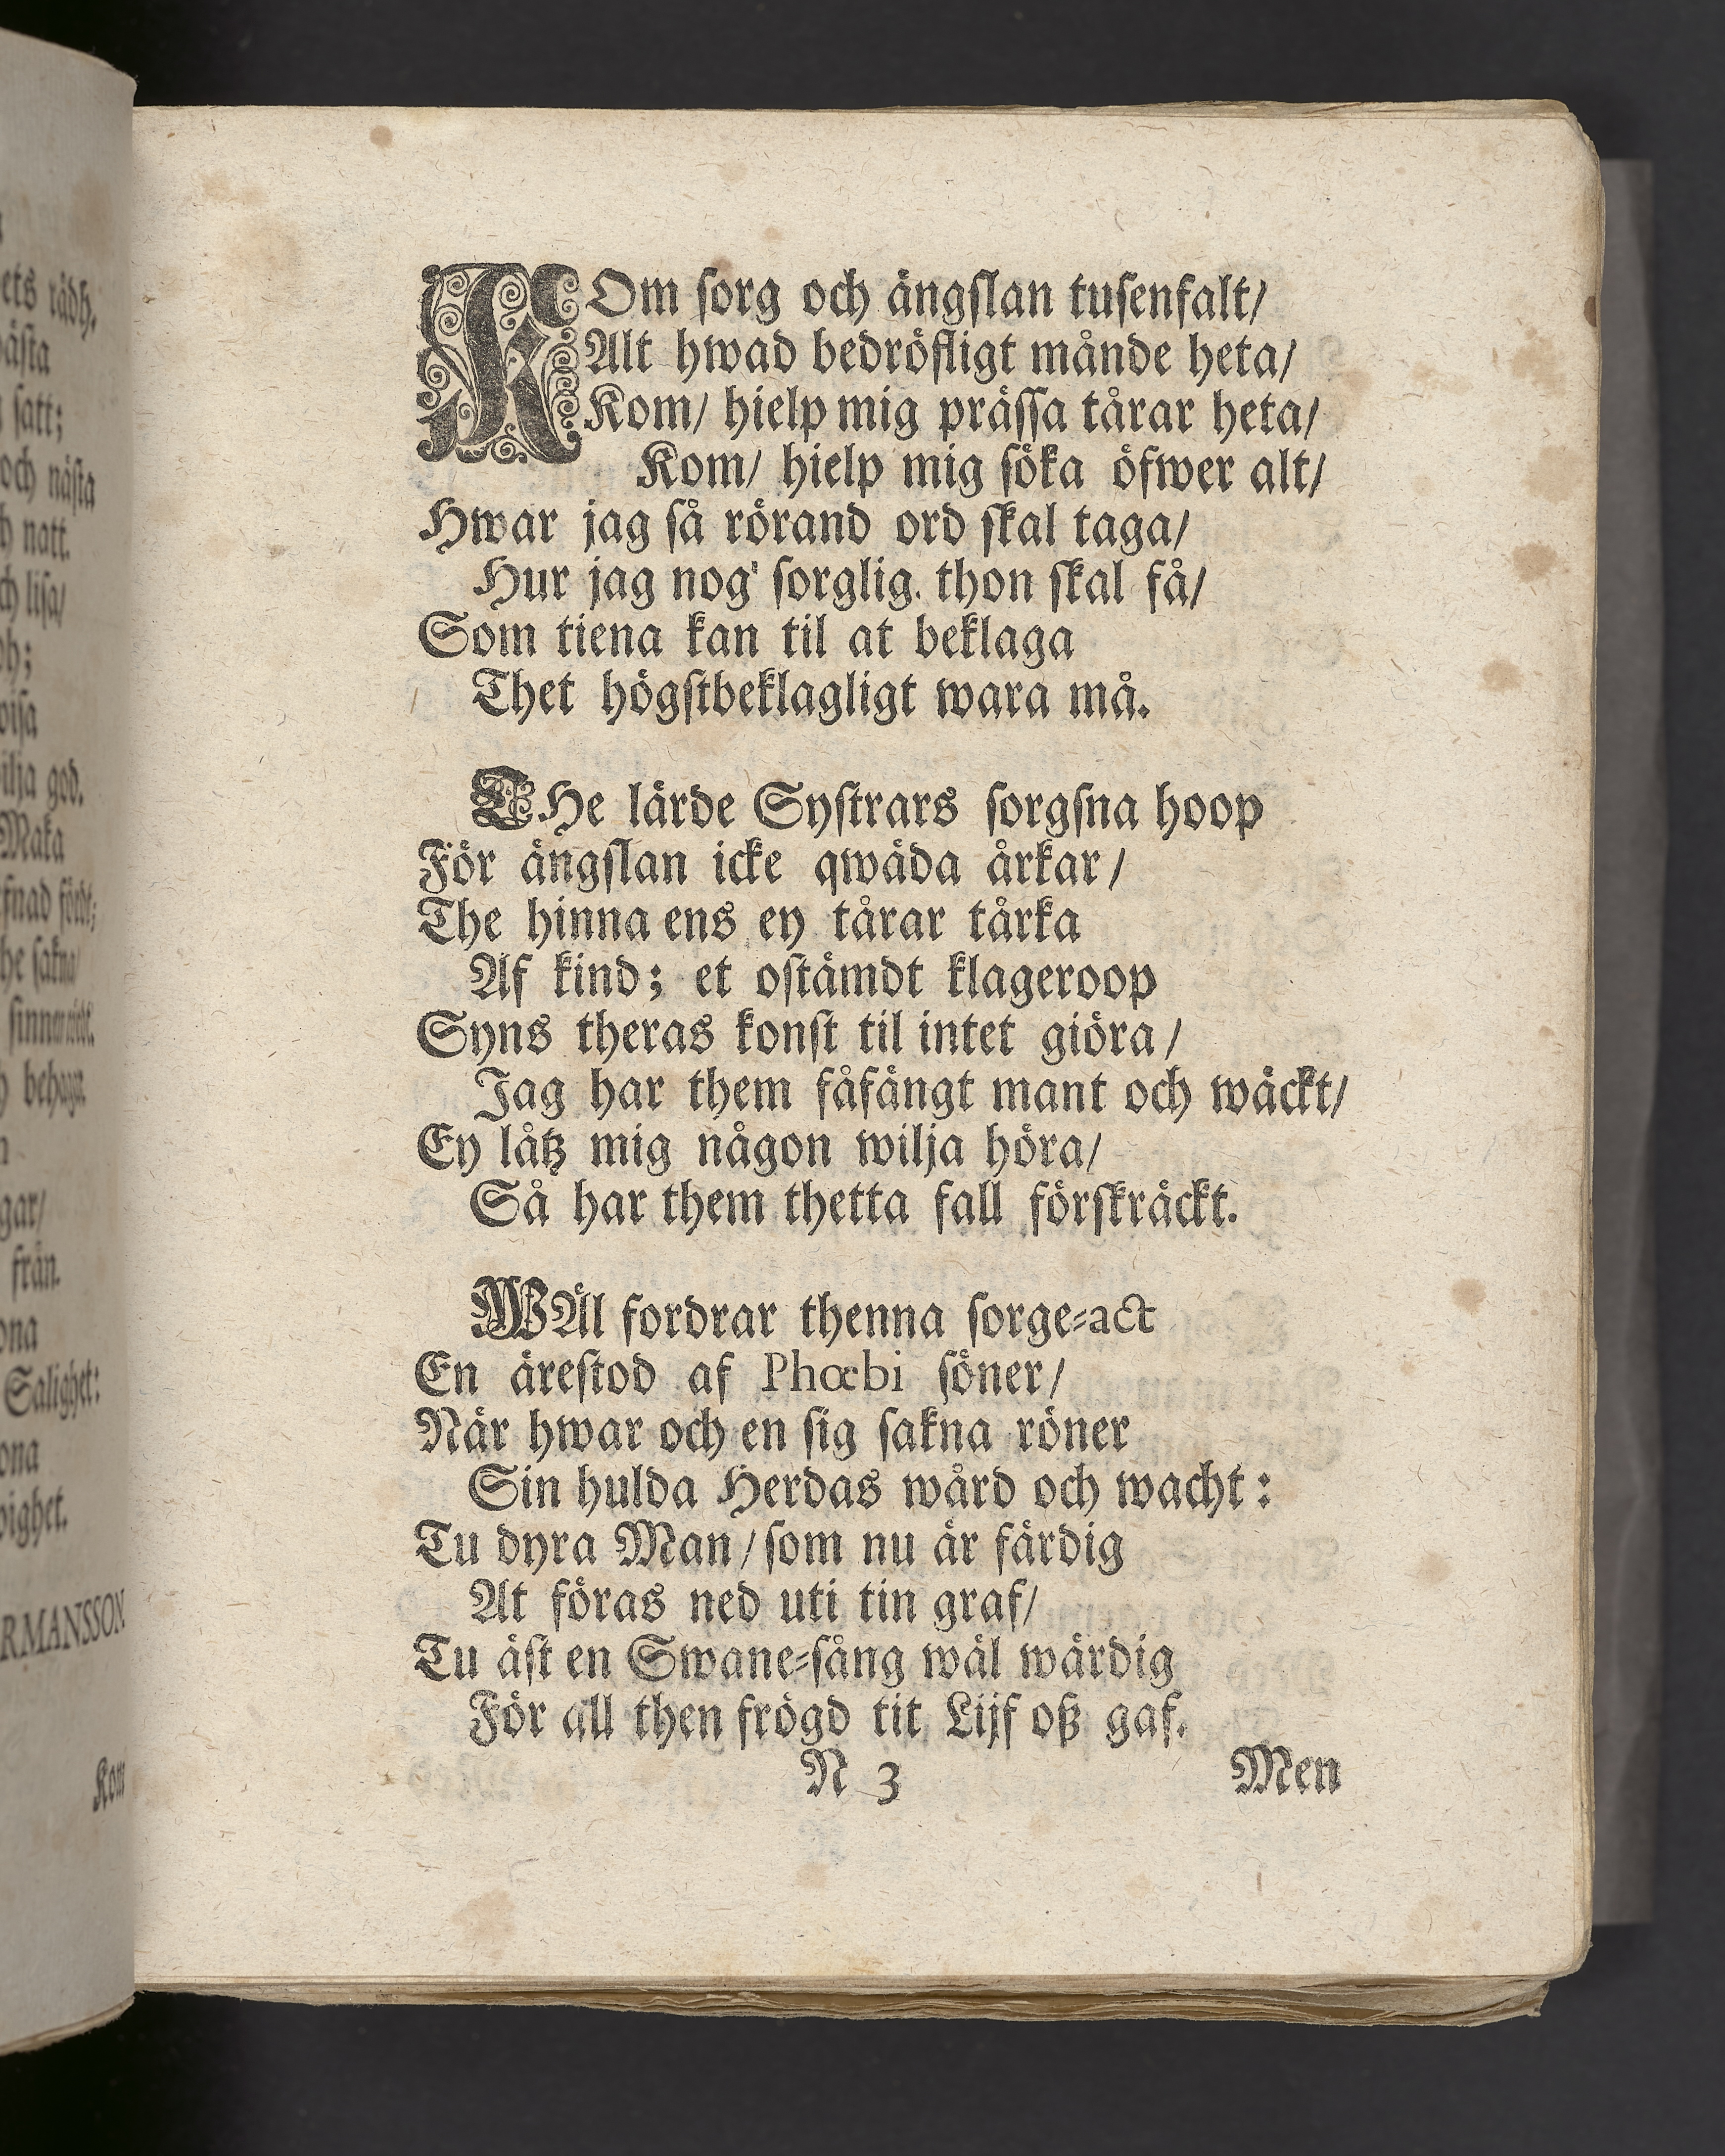 ets rådh.
satt;
och nästa
natt.
lisa/
god.
Maka
från.
Salighet:
Kom
KOm sorg och ängslan tusenfalt/
Alt hwad bedröfligt månde heta/
Kom/ hielp mig prässa tårar heta/
Kom/ hielp mig söka öfwer alt/
Hwar jag så rörand ord skal taga/
Hur jag nog' sorglig. thon skal få/
Som tiena kan til at beklaga
Thet högstbeklagligt wara må.
THe lärde Systrars sorgsna hoop
För ängslan icke qwäda årkar/
The hinna ens ey tårar tårka
Af kind; et ostämdt klageroop
Syns theras konst til intet giöra/
Jag har them fåfängt mant och wäckt/
Ey låtz mig någon wilja höra/
Så har them thetta fall förskräckt.
WÄl fordrar thenna sorge-act
En ärestod af Phœbi söner/
När hwar och en sig sakna röner
Sin hulda Herdas wård och wacht:
Tu dyra Man/ som nu är färdig
At föras ned uti tin graf/
Tu äst en Swane-sång wäl wärdig
För all then frögd tit Lijf oß gaf.
N 3 Men